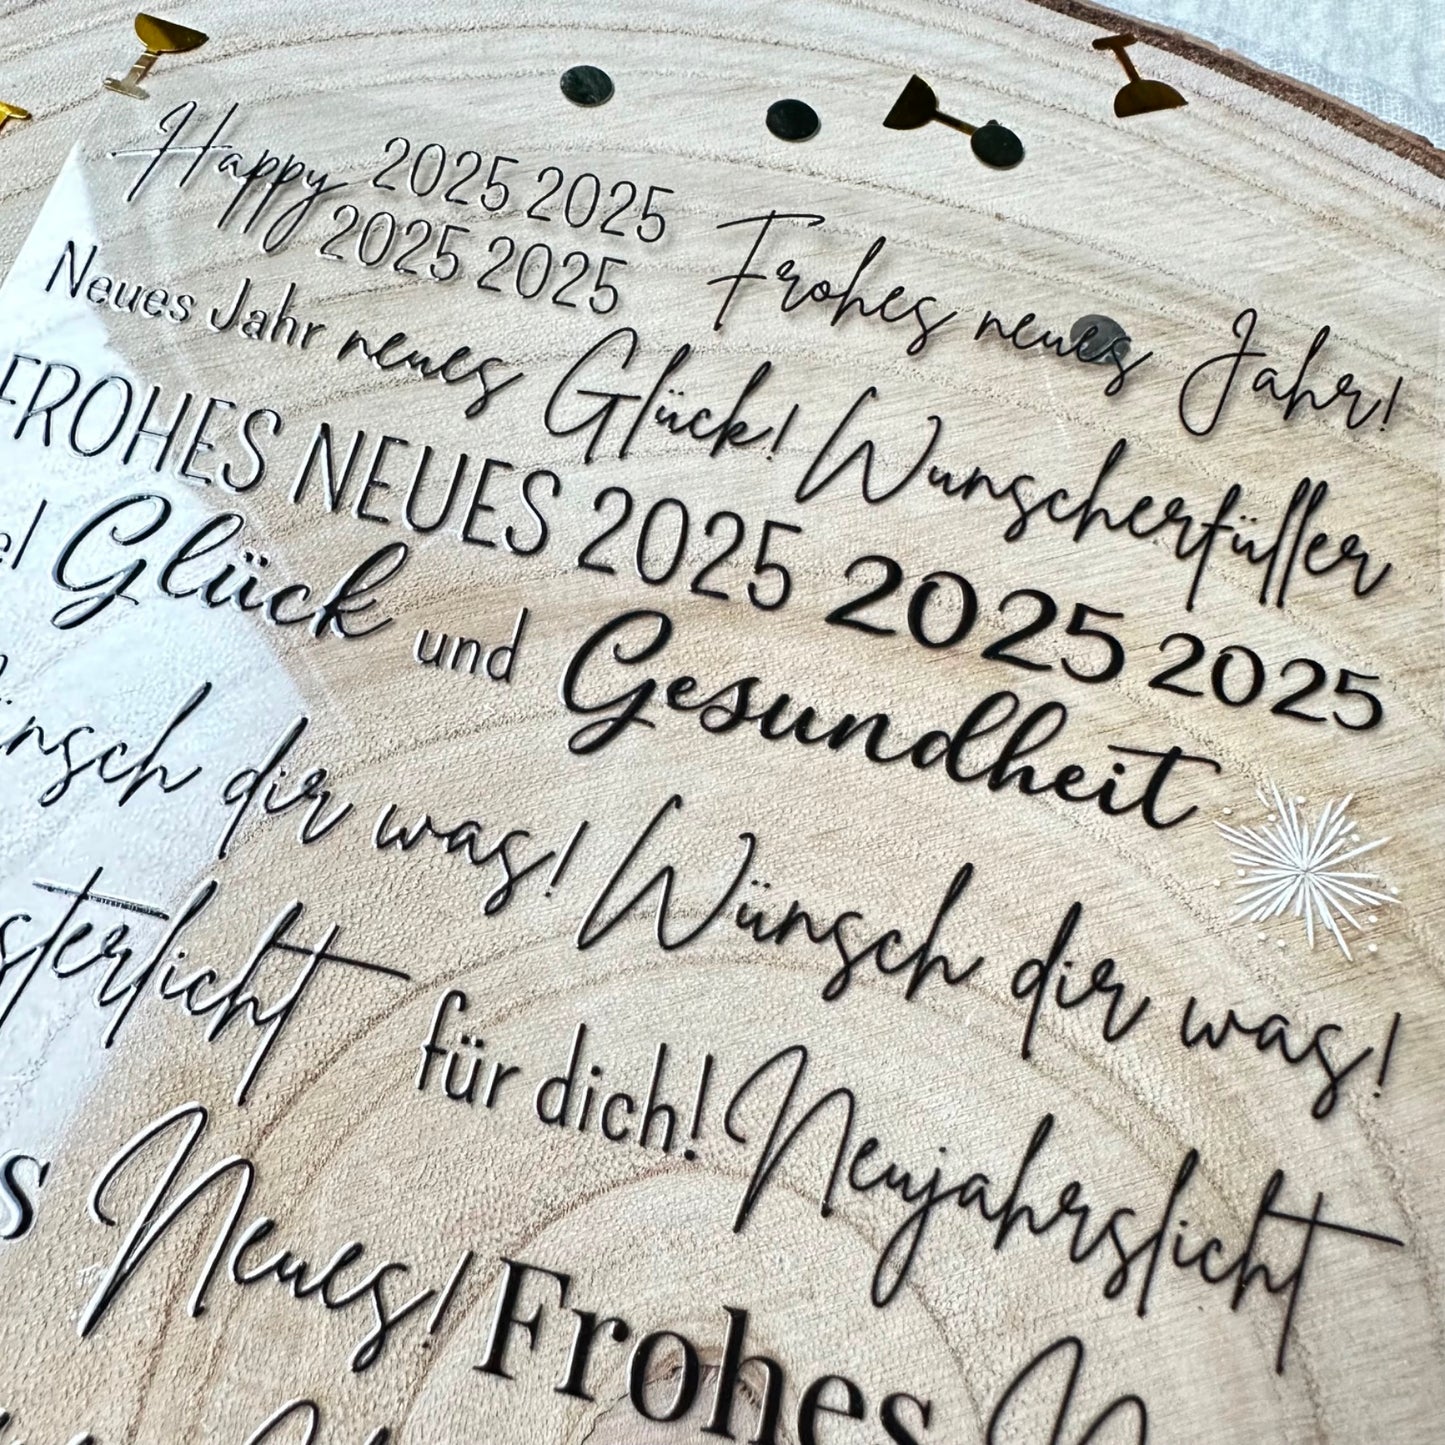 Happy 2025 2025
2025 2025 Frohes neues Jahr!
Neues Jahr neues Glück! Wunscherfüller
FROHES NEUES 2025 2025 2025
Glück und Gesundheit
dir was! Wünsch dir was!
für dich! Neujahrslicht
Neues! Frohes